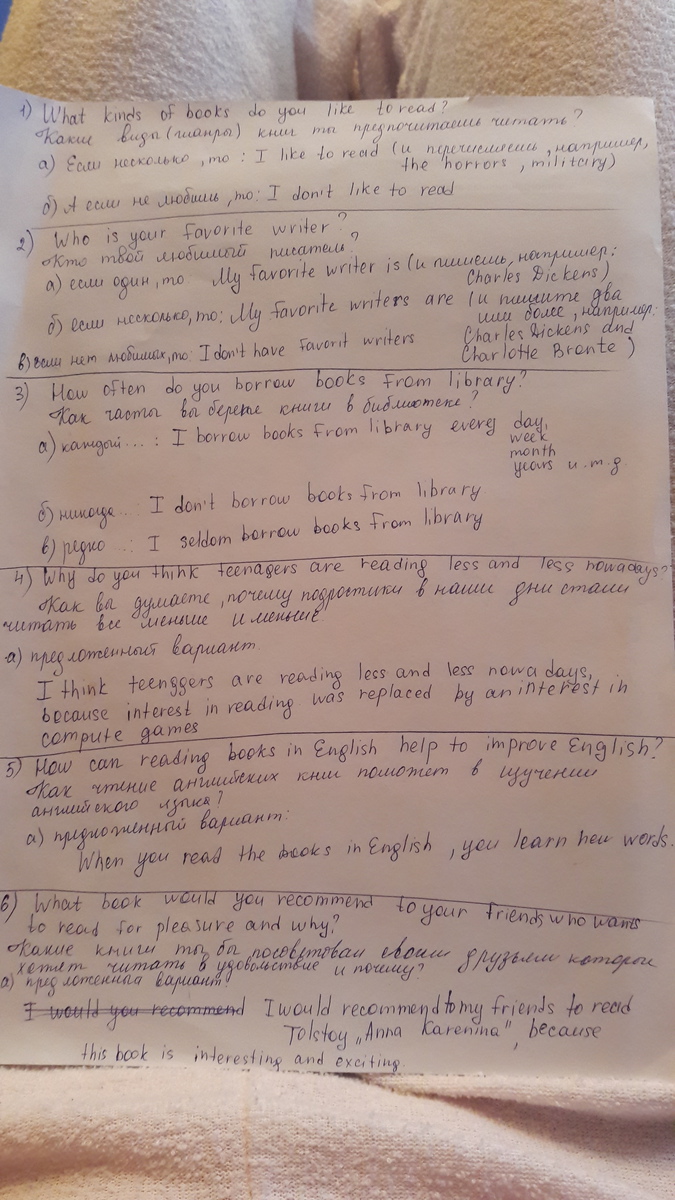 1) What kinds of books do you like to read?
Какие виды (жанры) книг ты предпочитаешь читать?
а) Если несколько, то: I like to read (и перечисляешь, например,
the horrors, military)
б) А если не любишь, то: I don't like to read
2) Who is your favorite writer?
Кто твой любимый писатель?
а) если один, то My favorite writer is (и пишешь, например:
Charles Dickens)
б) если несколько, то: My favorite writers are (и пишите два
или более, например:
Charles Dickens and
Charlotte Bronte)
в) если нет любимых, то: I don't have favorit writers
3) How often do you borrow books from library?
Как часты вы берете книги в библиотеке?
а) каждый...: I borrow books from library every day,
week
month
years и.т.д.
б) никогда... I don't borrow books from library
в) редко ...: I seldom borrow books from library
4) Why do you think teenagers are reading less and less nowadays?
Как вы думаете, почему подростки в наши дни стали
читать все меньше и меньше
а) предложенный вариант.
I think teenggers are reading less and less nowadays,
bocause interest in reading was replaced by an interest in
compute games
5) How can reading books in English help to improve English?
Как чтение английских книг поможет в изучении
английского языка?
а) предложенный вариант:
When you read the books in English, you learn new words.
6) What book would you recommend to your friends who wants
to read for pleasure and why?
Какие книги ты бы посоветовал своим друзьям которые
хотят читать в удовольствие и почему?
а) предложенный вариант:
I would you recommend I would recommend to my friends to read
Tolstoy „Anna Karenina", because
this book is interesting and exciting